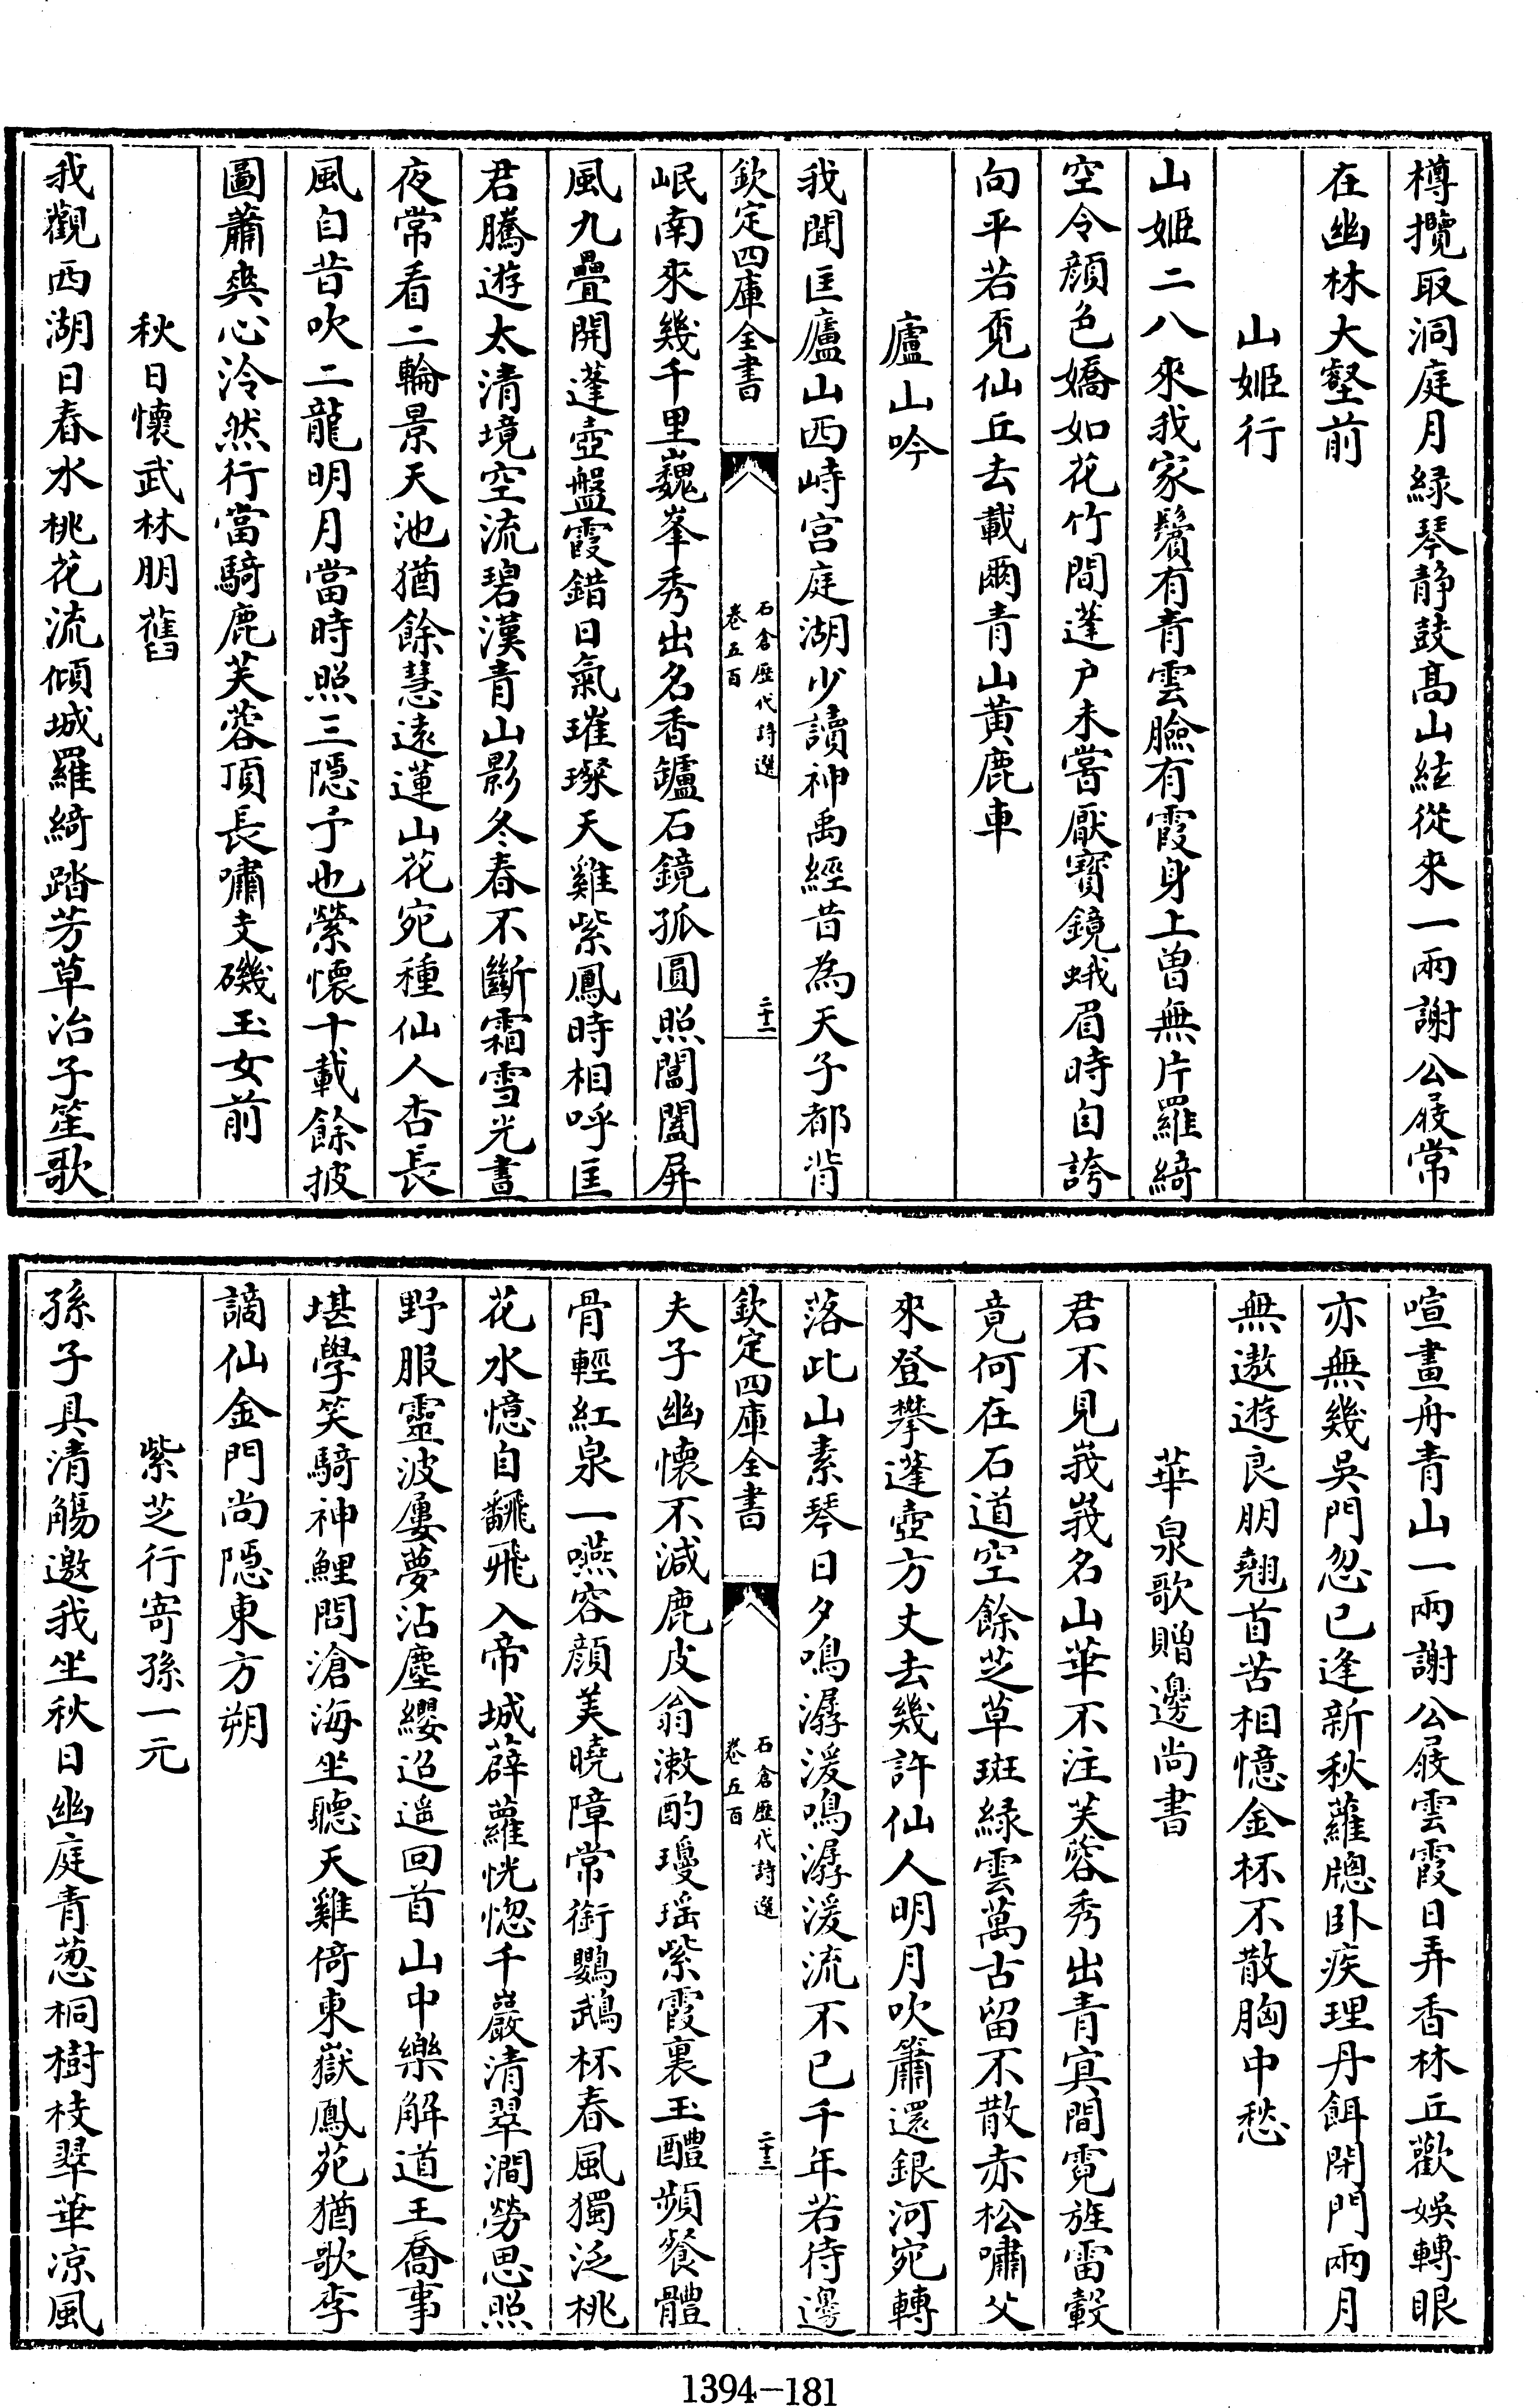 樽攬取洞庭月緑琴静鼓髙山絃從來一兩謝公屐常
在幽林大壑前
山姬行
山姬二八來我家鬢有青雲臉有霞身上曽無片羅綺
空令顔色嬌如花竹間蓬户未嘗厭寳鏡蛾眉時自誇
向平若覔仙丘去載爾青山黄鹿車
廬山吟
我聞匡廬山西峙宫庭湖少讀神禹經昔為天子都背
欽定四庫全書
石倉歴代詩選
卷五百
二十二
岷南來幾千里巍峯秀出名香鑪石鏡孤圓照閶闔屏
風九疊開蓬壺盤霞錯日氣璀璨天雞紫鳳時相呼匡
君騰遊太清境空流碧漢青山影冬春不斷霜雪光晝
夜常看二輪景天池猶餘慧遠蓮山花宛種仙人杏長
風自昔吹二龍明月當時照三隱予也縈懷十載餘披
圖蕭爽心泠然行當騎鹿芙蓉頂長嘯支磯玉女前
秋日懷武林朋舊
我觀西湖日春水桃花流傾城羅綺踏芳草冶子笙歌
喧畫舟青山一兩謝公屐雲霞日弄香林丘歡娛轉眼
亦無幾吳門忽已逢新秋蘿牕卧疾理丹餌閉門兩月
無遨遊良朋翹首苦相憶金杯不散胸中愁
華泉歌贈邊尚書
君不見峩峩名山華不注芙蓉秀出青㝠間霓旌雷轂
竟何在石道空餘芝草斑緑雲萬古留不散赤松嘯父
來登攀蓬壺方丈去幾許仙人明月吹簫還銀河宛轉
落此山素琴日夕鳴潺湲鳴潺湲流不已千年若待邊
欽定四庫全書
石倉歴代詩選
卷五百
二十三
夫子幽懷不減鹿皮翁漱酌瓊瑤紫霞裏玉醴頻餐體
骨輕紅泉一嚥容顔美曉障常銜鸚鵡杯春風獨泛桃
花水憶自飜飛入帝城薜蘿恍惚千巖清翠澗勞思照
野服靈波屢夢沾塵纓迢遥回首山中樂解道王喬事
堪學笑騎神鯉問滄海坐聽天雞倚東嶽鳳苑猶歌李
謫仙金門尚隱東方朔
紫芝行寄孫一元
孫子具清觴邀我坐秋日幽庭青葱桐樹枝翠華凉風
1394—181